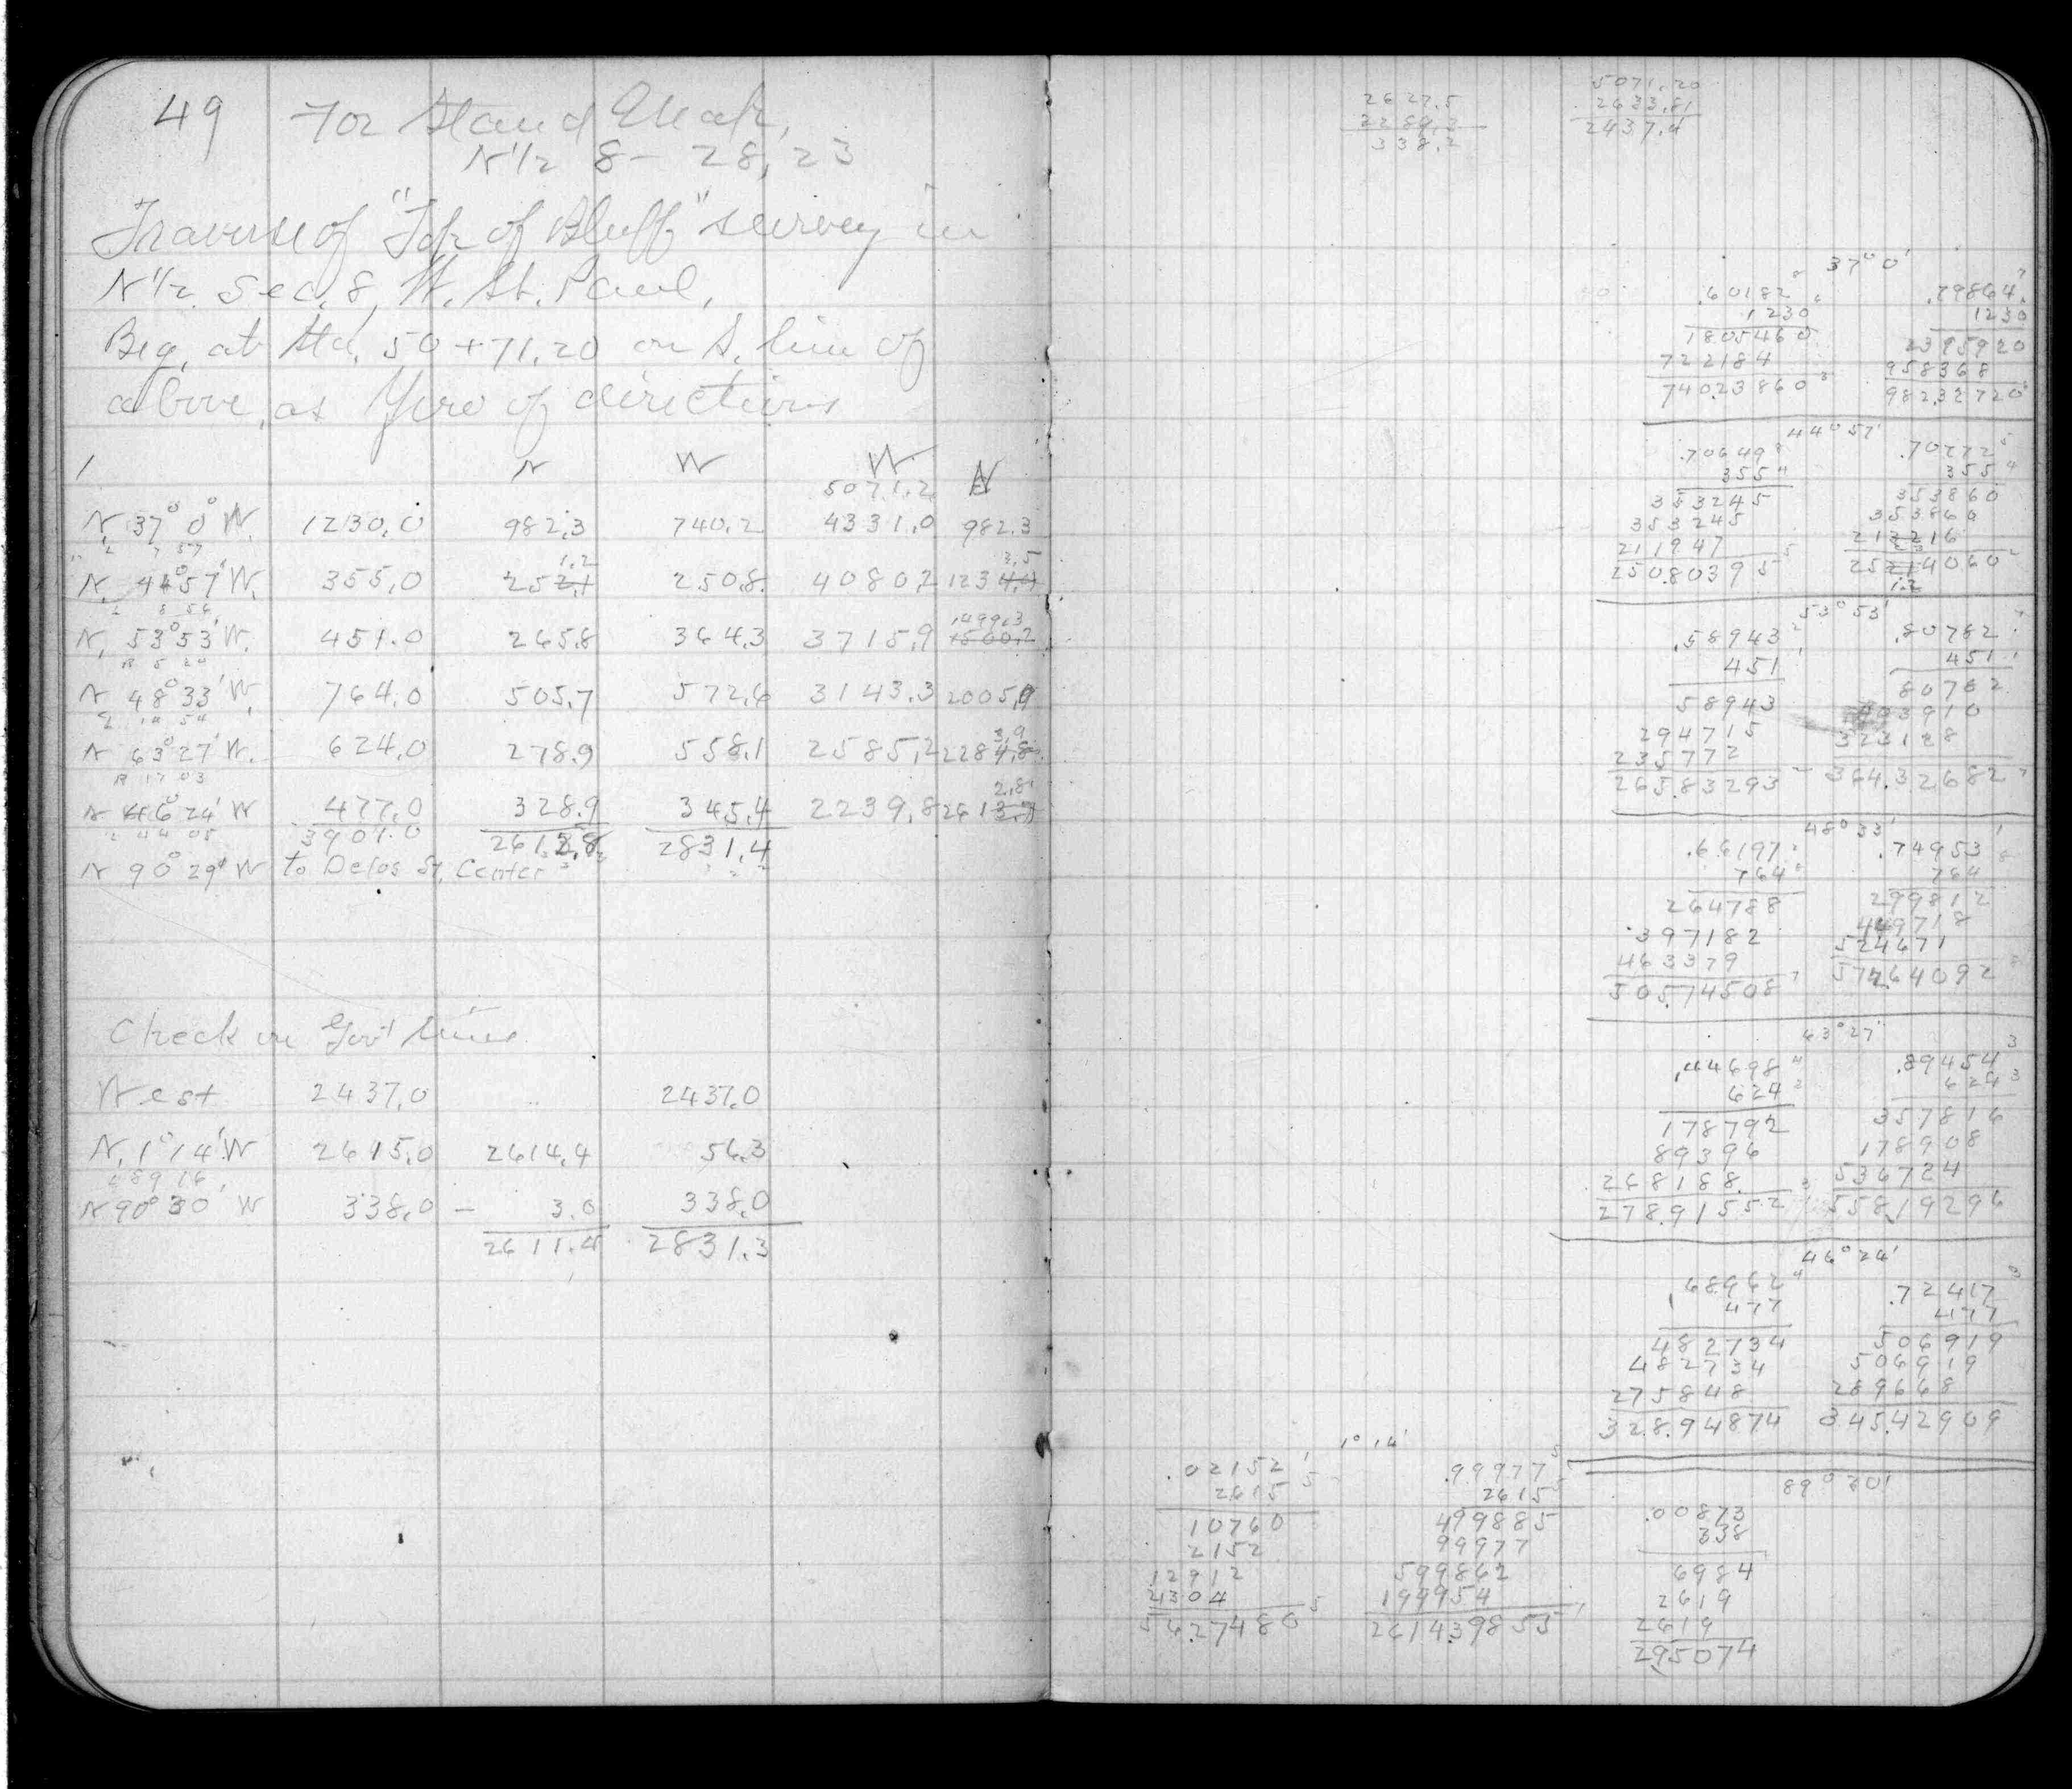 49 For Stand
N 1/2 8 - 28, 23
Traverse of "Top of Bluff" survey in
N 1/2 Sec. 8, W. St. Paul,
Beg. at Sta. 50+71.20 on S. line of
above, as Zero of directions
1 N W W N
5071.2
N. 37° 0' W. 1230.0 982.3 740.2 4331.0 982.3
L 7 57 1.2 3.5
N. 44° 57' W. 355.0 252.1 250.8 4080.2 1234.4
L 8 56 1499.3
N. 53° 53' W. 451.0 265.8 364.3 3715.9 1500.2
R 5 20
N 48° 33' W. 764.0 505.7 572.6 3143.3 2005.0
L 14 54 3.9
N 63° 27' W. 624.0 278.9 558.1 2585.2 2284.8
R 17 03 2.8
N 46° 24' W 477.0 328.9 345.4 2239.8 2613.7
L 44 05 3901.0 2612.8 2831.4
N 90° 29' W to Delos St. Center
Check on Gov't lines
West 2437.0 2437.0
N. 1° 14' W 2615.0 2614.4 56.3
L 89 16
N 90° 30' W 338.0 - 3.0 338.0
2611.4 2831.3
2627.5
2289.2
338.2
5071.20
2633.81
2437.4
37° 0'
.60182 .79864
1230 1230
1805460 2395920
722184 958368
740.23860 982.32720
44° 57'
.70649 .70772
355 355
353245 353860
353245 353860
211947 212216
250.80395 25214060
1.2
53° 53'
.58943 .80782
451 451
58943 80782
294715 403910
235772 323128
265.83293 364.32682
48° 33'
.66197 .74953
764 764
264788 299812
397182 449718
463379 524671
505.74508 572.64092
63° 27'
.44698 .89454
624 624
178792 357816
89396 178908
268188 536724
278.91552 558.19296
46° 24'
.68962 .72417
477 477
482734 506919
482734 506919
275848 289668
328.94874 345.42909
1° 14'
.02152 .99977
2615 2615
10760 499885
2152 99977
12912 599862
4304 199954
56.27480 2614.39855
89° 30'
.00873
338
6984
2619
2619
2.95074